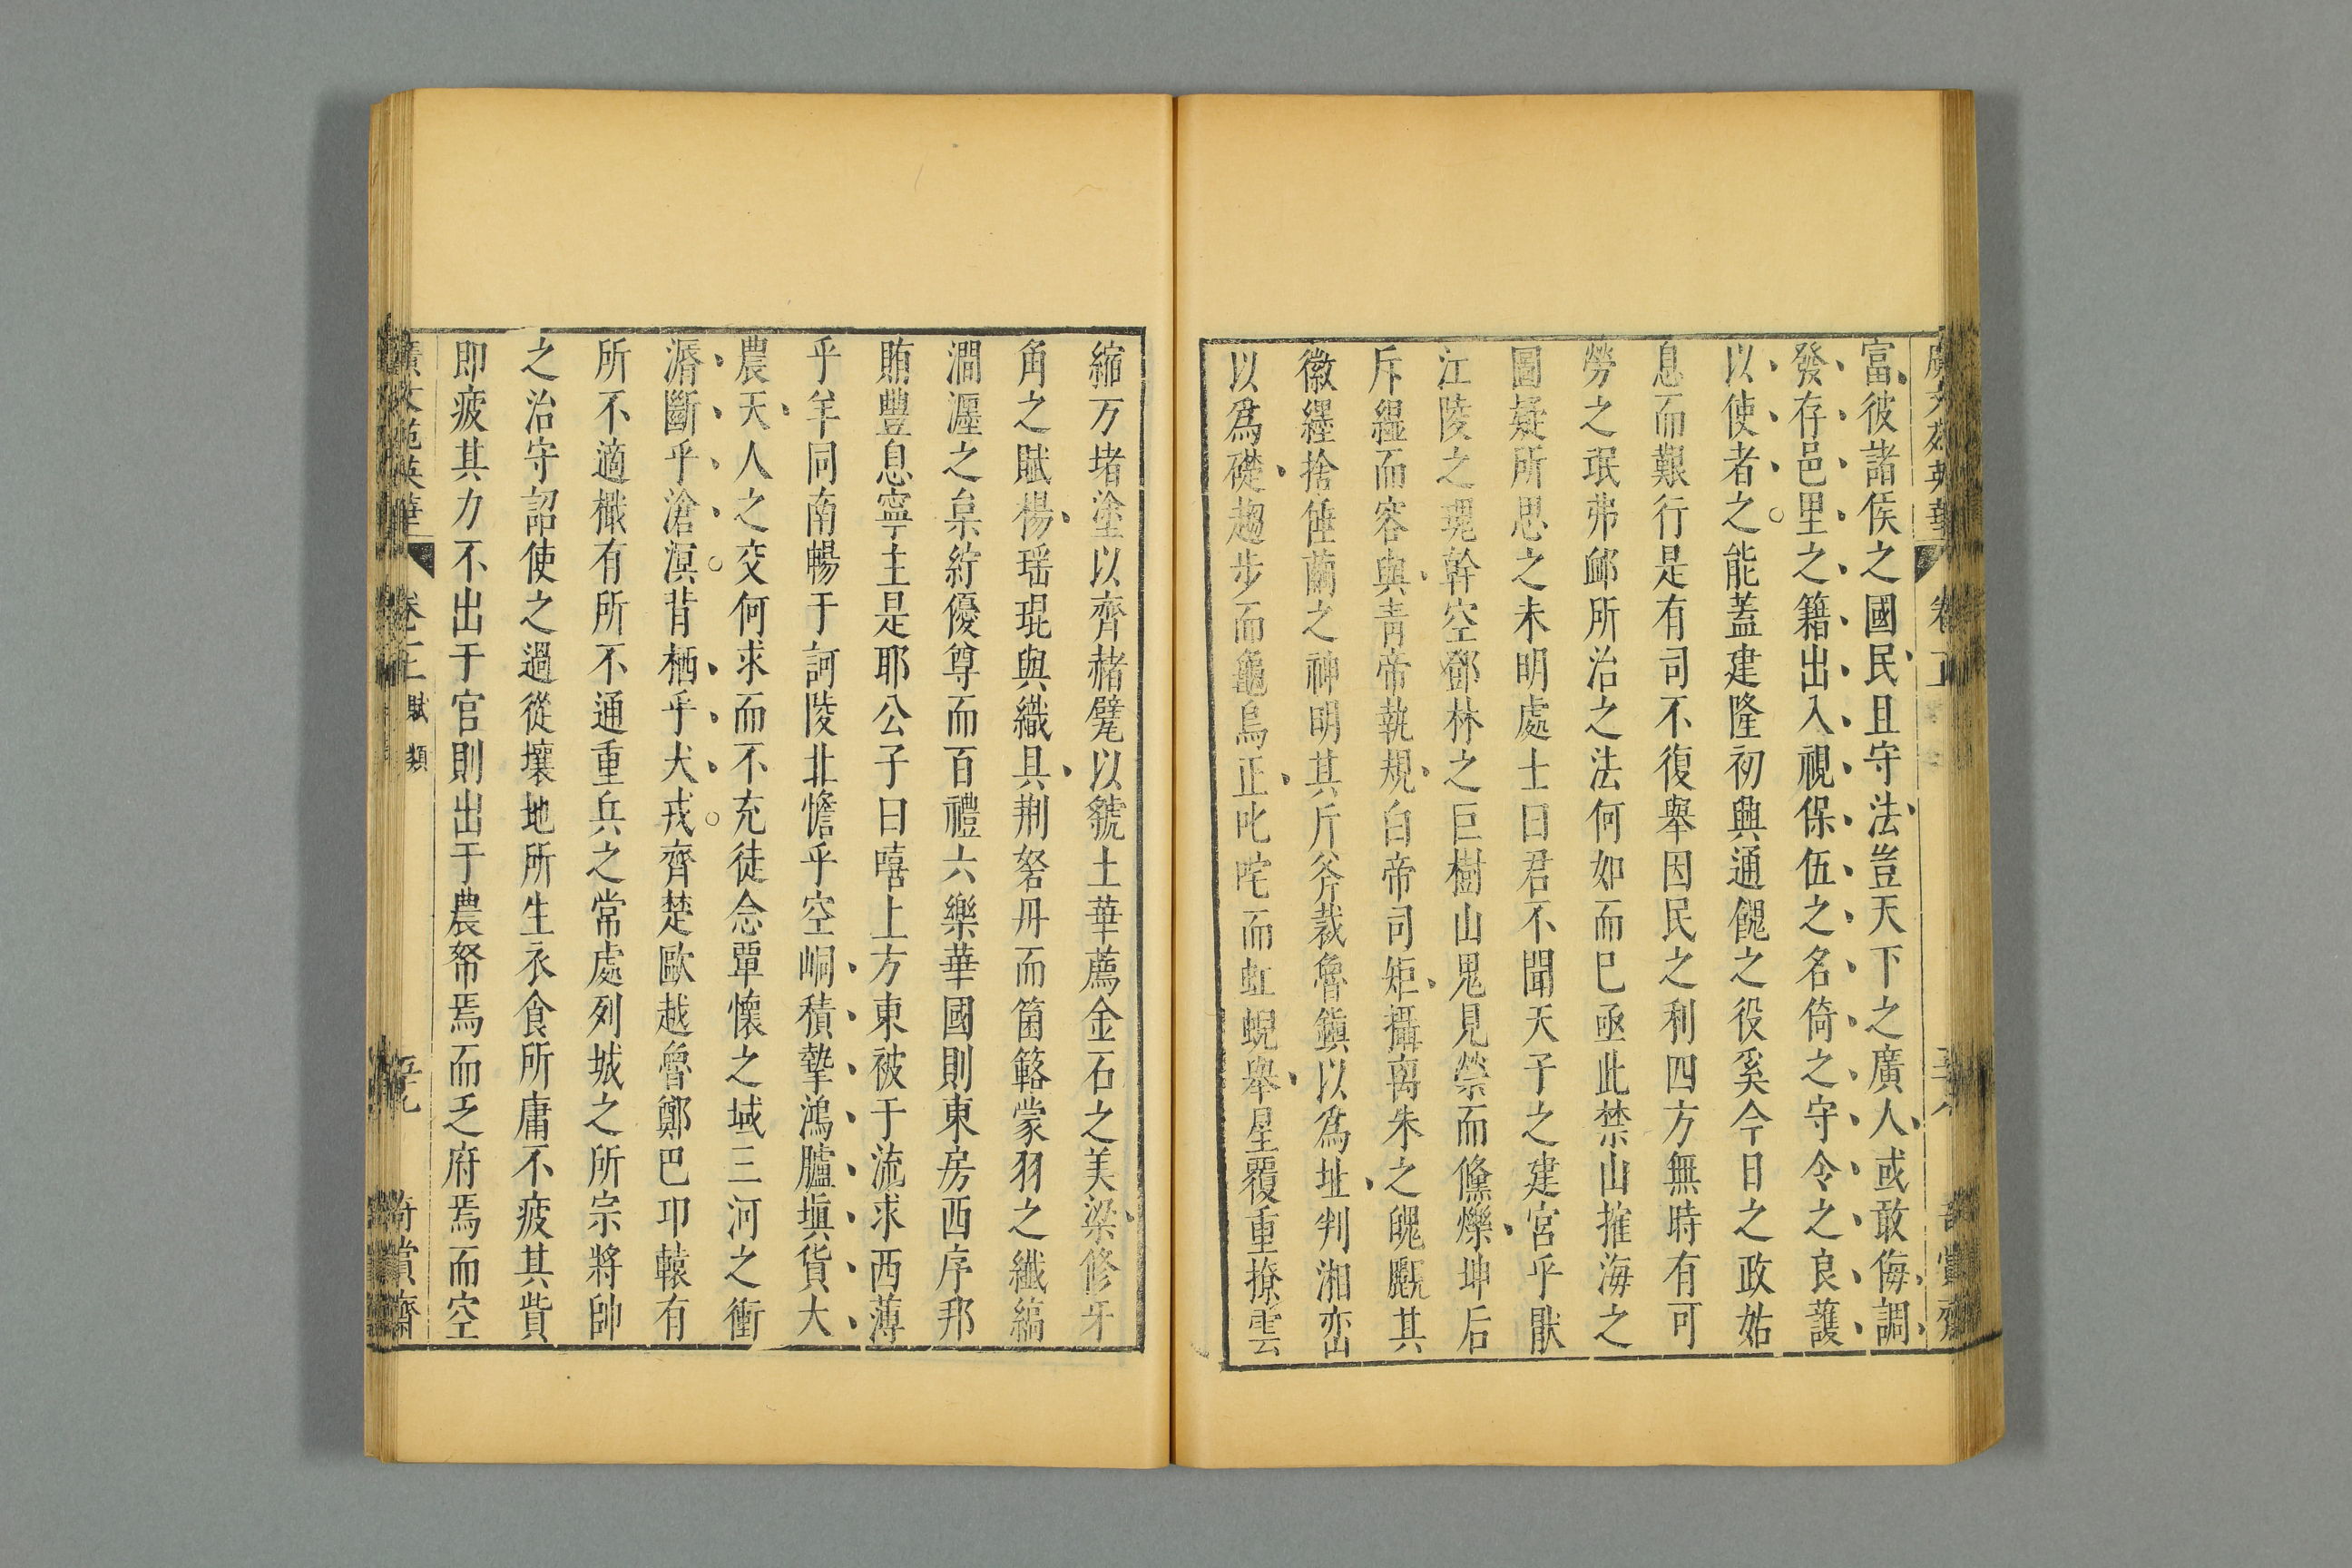 富彼諸侯之國民且守法豈天下之廣人或敢侮調
發存邑里之籍出入視保伍之名倚之守令之良護
以使者之能蓋建隆初興通餽之役奚今日之政姑
息而艱行是有司不復舉因民之利四方無時有可
勞之珉弗䘏所治之法何如而巳亟此禁山摧海之
圖疑所思之未明處士曰君不聞天子之建宮乎厭
江陵之瑰幹空鄧林之巨樹山鬼見禜而儵爍坤后
斥縕而容與青帝執規白帝司矩攝离朱之䰟厩其
徽纆捨倕蘭之神明其斤斧裁魯鎭以爲址判湘巒
以爲礎趨步而龜烏正叱咤而虹蜺舉星覆重撩雲
縮万堵塗以齊赭甓以虢土華薦金石之美梁修牙
角之賦楊瑶琨與織具荆砮丹而箘簬蒙羽之纖縞
澗瀍之枲紵優尊而百禮六樂華國則東房西序邦
賄豐息寧主是耶公子曰嘻上方東被于流求西薄
乎羊同南暢于訶陵北憺乎空峒積摯鴻臚塡貨大
農天人之交何求而不充徒念覃懷之域三河之衝
漘斷乎滄溟背栖乎犬戎齊楚歐越魯鄭巴邛轅有
所不適檝有所不通重兵之常處列城之所宗將帥
之治守詔使之過從壤地所生衣食所庸不疲其貲
即疲其力不出于官則出于農帑焉而乏府焉而空
廣文苑英華 賦類